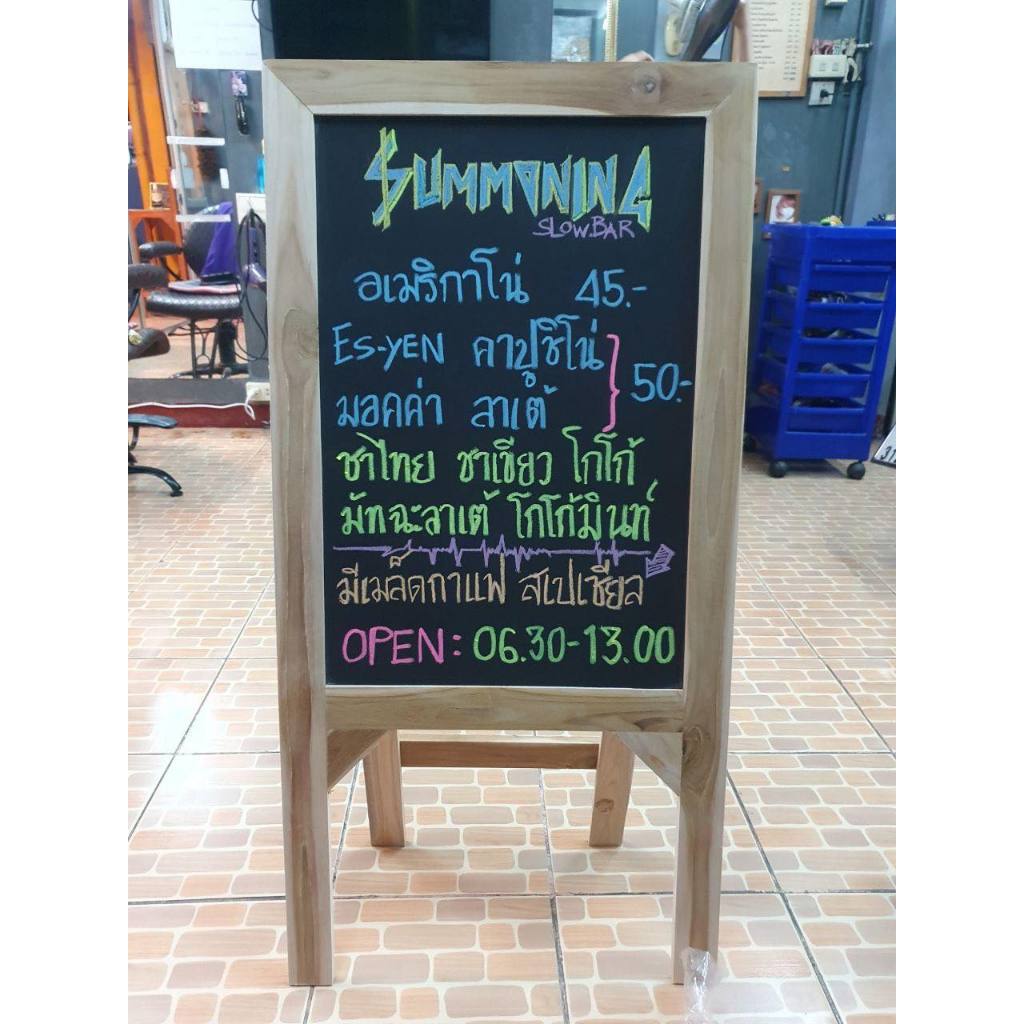 SUMMONING
SLOW.BAR
อเมริกาโน่ 45.-
ES-YEN คาปูชิโน่
มอคค่า ลาเต้
50.-
ชาไทย ชาเขียว โกโก้
มัทฉะลาเต้ โกโก้มินท์
มีเมล็ดกาแฟ สเปเชียล
OPEN: 06.30-13.00
31